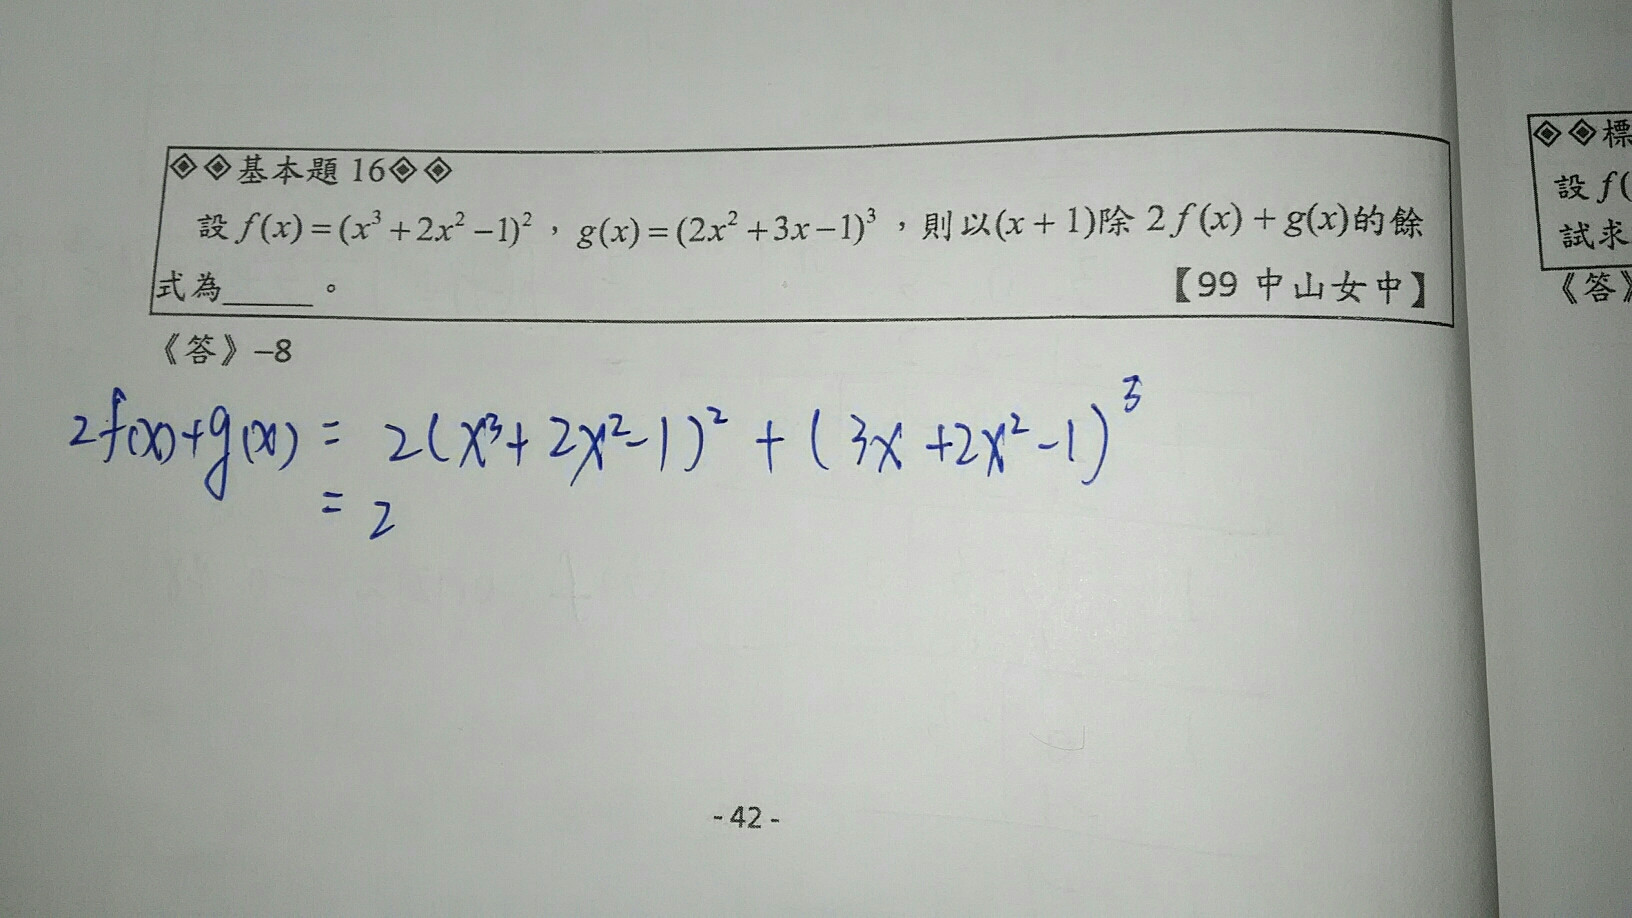 ◈◈基本題 16◈◈
設 f(x)=(x³+2x²−1)²，g(x)=(2x²+3x−1)³，則以(x+1)除 2f(x)+g(x)的餘
式為_____。 【99 中山女中】
《答》−8
2f(x)+g(x) = 2(x³+2x²-1)² + (3x+2x²-1)³
= 2
- 42 -
◈◈標
設 f(
試求
《答》